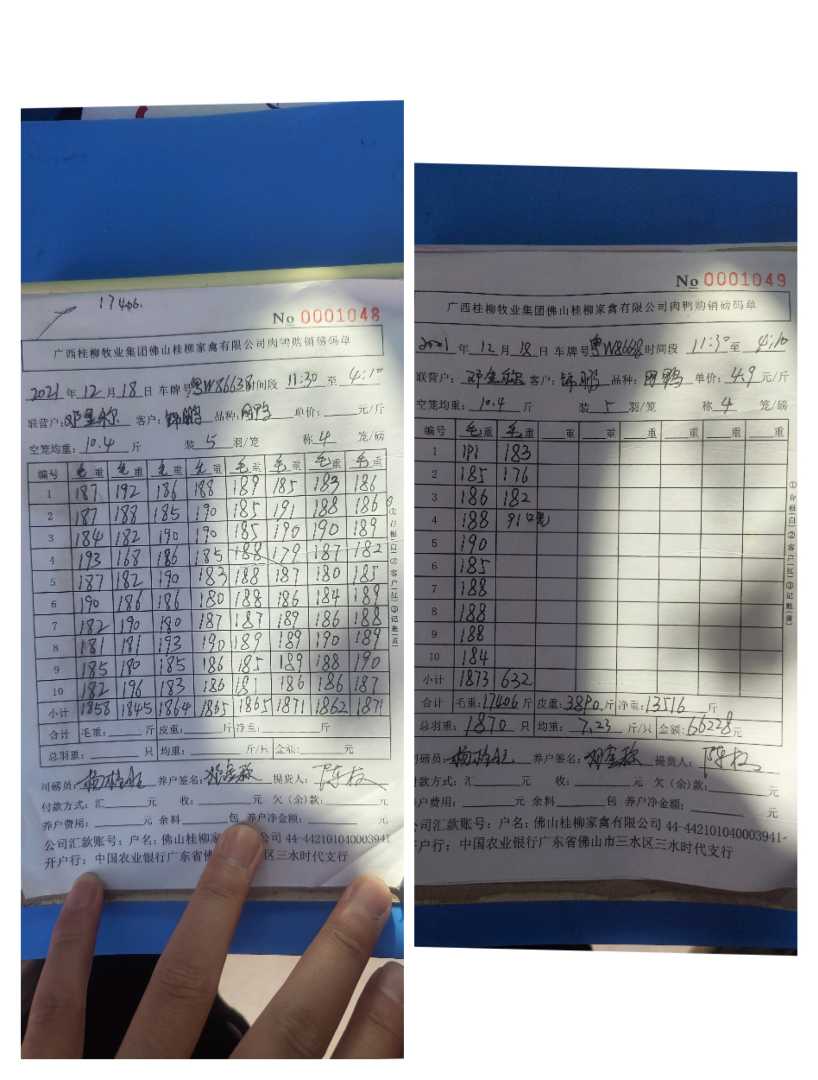 17406.
No 0001048
广西桂柳牧业集团佛山桂柳家禽有限公司肉鸭购销磅码单
2021 年 12 月 18 日 车牌号粤W8663 时间段 11:30 至 4:10
联营户: 客户: 品种:肉鸭 单价: 元/斤
空笼均重: 10.4 斤 装 5 羽/笼 称 4 笼/磅
编号 毛重 毛重 毛重 毛重 毛重 毛重 毛重 毛重
1 187 192 186 188 189 185 183 186
2 187 188 185 190 185 191 188 186
3 184 182 190 190 185 190 190 189
4 193 168 186 185 188 179 187 182
5 187 182 190 183 188 187 180 185
6 190 186 186 180 188 186 184 189
7 182 190 180 187 187 189 186 188
8 181 181 193 190 189 189 190 189
9 185 180 185 186 185 189 188 190
10 182 196 183 186 181 186 186 187
小计 1858 1845 1864 1865 1865 1871 1862 1871
合计 毛重: 斤 皮重: 斤 净重: 斤
总羽重: 只 均重: 斤/只 金额: 元
司磅员: 养户签名: 提货人:
付款方式:汇 元 收: 元 欠(余)款: 元
养户费用: 元 余料 包 养户净金额: 元
公司汇款账号:户名:佛山桂柳家 公司 44-442101040003941
开户行:中国农业银行广东省佛 区三水时代支行
No 0001049
广西桂柳牧业集团佛山桂柳家禽有限公司肉鸭购销磅码单
2021 年 12 月 18 日 车牌号粤W8663 时间段 11:30 至 4:10
联营户: 客户: 品种:肉鸭 单价:4.9 元/斤
空笼均重: 10.4 斤 装 5 羽/笼 称 4 笼/磅
编号 毛重 毛重 重 重 重 重 重 重
1 191 183
2 185 176
3 186 182
4 188 91
5 190
6 185
7 188
8 188
9 188
10 184
小计 1873 632
合计 毛重:17406 斤 皮重:3890 斤 净重:13516 斤
总羽重: 1870 只 均重: 7.23 斤/只 金额:66228元
司磅员: 养户签名: 提货人:
付款方式:汇 元 收: 元 欠(余)款: 元
户费用: 元 余料 包 养户净金额: 元
公司汇款账号:户名:佛山桂柳家禽有限公司 44-442101040003941-
户行:中国农业银行广东省佛山市三水区三水时代支行